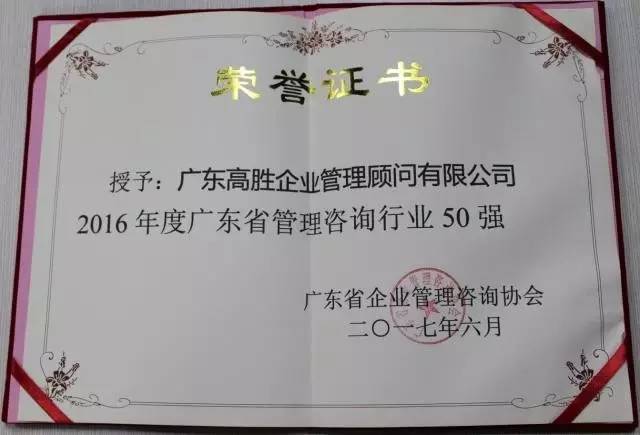 荣誉证书
授予：广东高胜企业管理顾问有限公司
2016年度广东省管理咨询行业50强
广东省企业管理咨询协会
二〇一七年六月